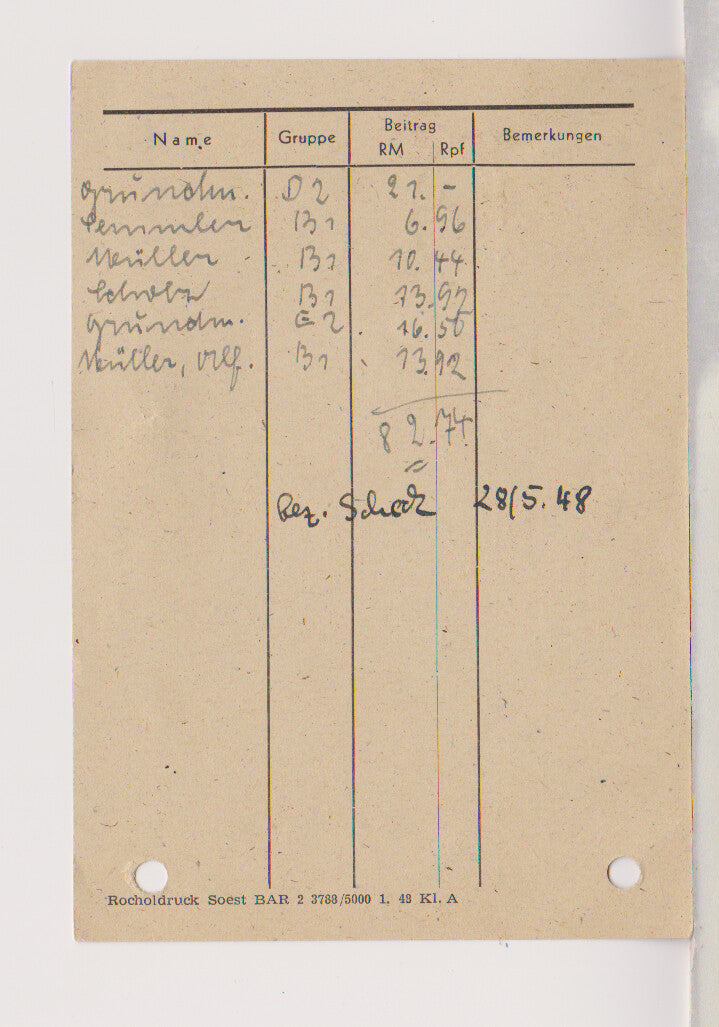 Name Gruppe Beitrag Bemerkungen
RM Rpf
Grundm. D 2 21. -
Semmler B1 6. 96
Müller B1 10. 44
Scholz B1 13. 92
Grundm. E 2 16. 50
Müller, Alf. B1 13. 92
82. 74
bez. Scheck 28/5. 48
Rocholdruck Soest BAR 2 3788/5000 1. 48 Kl. A